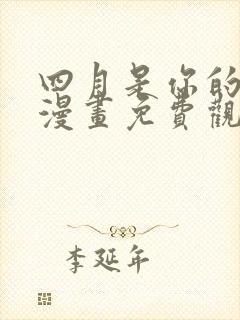 四月是你的
漫畫免費觀
李延年